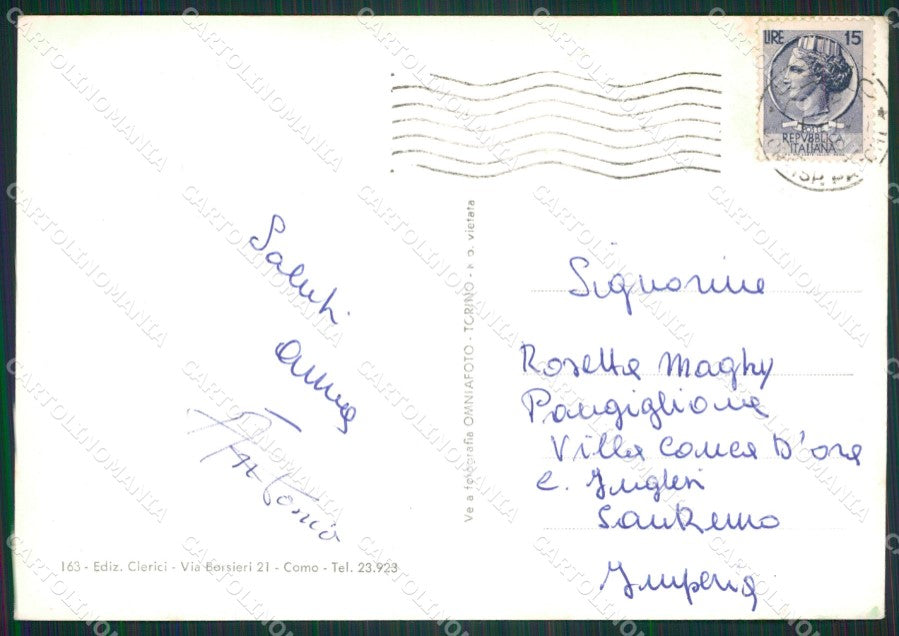 LIRE 15
POSTE
REPVBBLICA
ITALIANA
Saluti
Anna
Antonio
Vera fotografia OMNIAFOTO - TORINO - R p. vietata
Signorine
Rosetta Maghy
Pangiglione
Villa Conca D'ora
C. Inglesi
SanRemo
Imperia
163 - Ediz. Clerici - Via Borsieri 21 - Como - Tel. 23.923
CARTOLINOMANIA